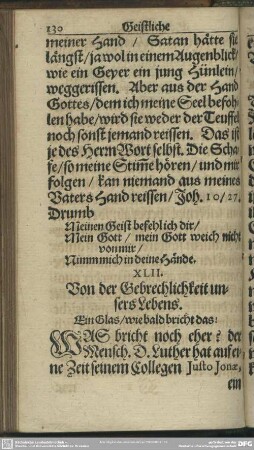 130 Geistliche
meiner Hand / Satan hätte sie
längst / ja wol in einem Augenblick /
wie ein Geyer ein jung Hünlein /
weggerissen. Aber aus der Hand
Gottes / dem ich meine Seel befoh-
len habe / wird sie weder der Teuffel
noch sonst jemand reissen. Das ist
je des Herrn Wort selbst. Die Scha-
fe / so meine Stim̃e hören / und mir
folgen / kan niemand aus meines
Vaters Hand reissen / Joh. 10/27.
Drumb
Meinen Geist befehl ich dir /
Mein Gott / mein Gott weich nicht
von mir /
Nimm mich in deine Hände.
XLII.
Von der Gebrechlichkeit un-
sers Lebens.
Ein Glas / wie bald bricht das:
WAS bricht noch eher? der
Mensch. D. Luther hat auf ei-
ne Zeit seinem Collegen Justo Jonæ,
ein